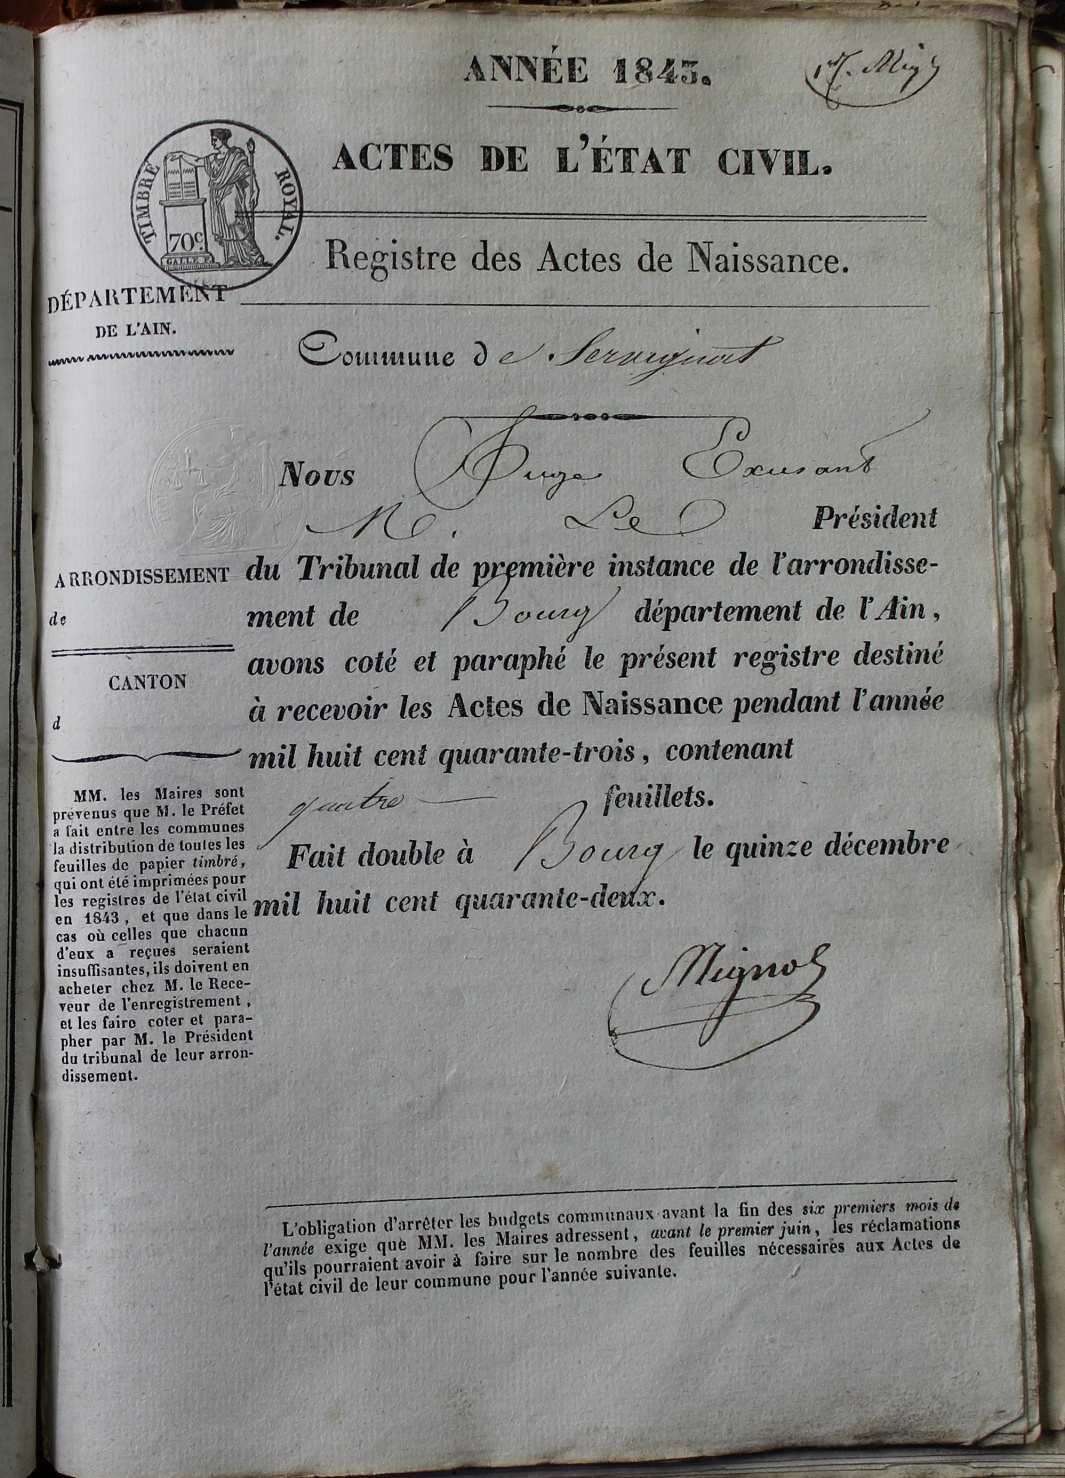 ANNÉE 1843.
ACTES DE L'ÉTAT CIVIL.
TIMBRE ROYAL.
70c.
Registre des Actes de Naissance.
DÉPARTEMENT
DE L'AIN.
Commune de Servignat
Nous Juge Excusant
M. Le Président
du Tribunal de première instance de l'arrondisse-
ment de Bourg département de l'Ain,
avons coté et paraphé le présent registre destiné
à recevoir les Actes de Naissance pendant l'année
mil huit cent quarante-trois, contenant
quatre feuillets.
Fait double à Bourg le quinze décembre
mil huit cent quarante-deux.
Mignot
ARRONDISSEMENT
de
CANTON
d
MM. les Maires sont
prévenus que M. le Préfet
a fait entre les communes
la distribution de toutes les
feuilles de papier timbré,
qui ont été imprimées pour
les registres de l'état civil
en 1843, et que dans le
cas où celles que chacun
d'eux a reçues seraient
insuffisantes, ils doivent en
acheter chez M. le Rece-
veur de l'enregistrement,
et les faire coter et para-
pher par M. le Président
du tribunal de leur arron-
dissement.
L'obligation d'arrêter les budgets communaux avant la fin des six premiers mois de
l'année exige que MM. les Maires adressent, avant le premier juin, les réclamations
qu'ils pourraient avoir à faire sur le nombre des feuilles nécessaires aux Actes de
l'état civil de leur commune pour l'année suivante.